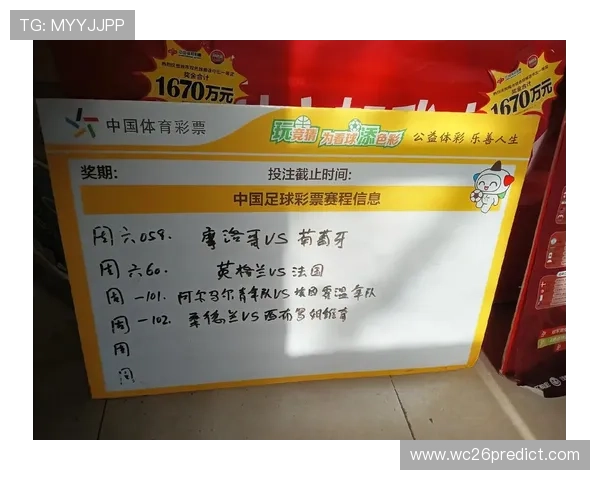 TG: MYYJJPP
1670万元
1670万元
中国体育彩票
玩竞猜 为看球添色彩
公益体彩 乐善人生
奖期:
投注截止时间:
中国足球彩票赛程信息
周六059. 摩洛哥VS葡萄牙
周六60. 英格兰VS法国
周一101. 阿尔马尔青年队VS埃因霍温青年队
周一102. 桑德兰VS西布罗姆维奇
周
周
www.wc26predict.com